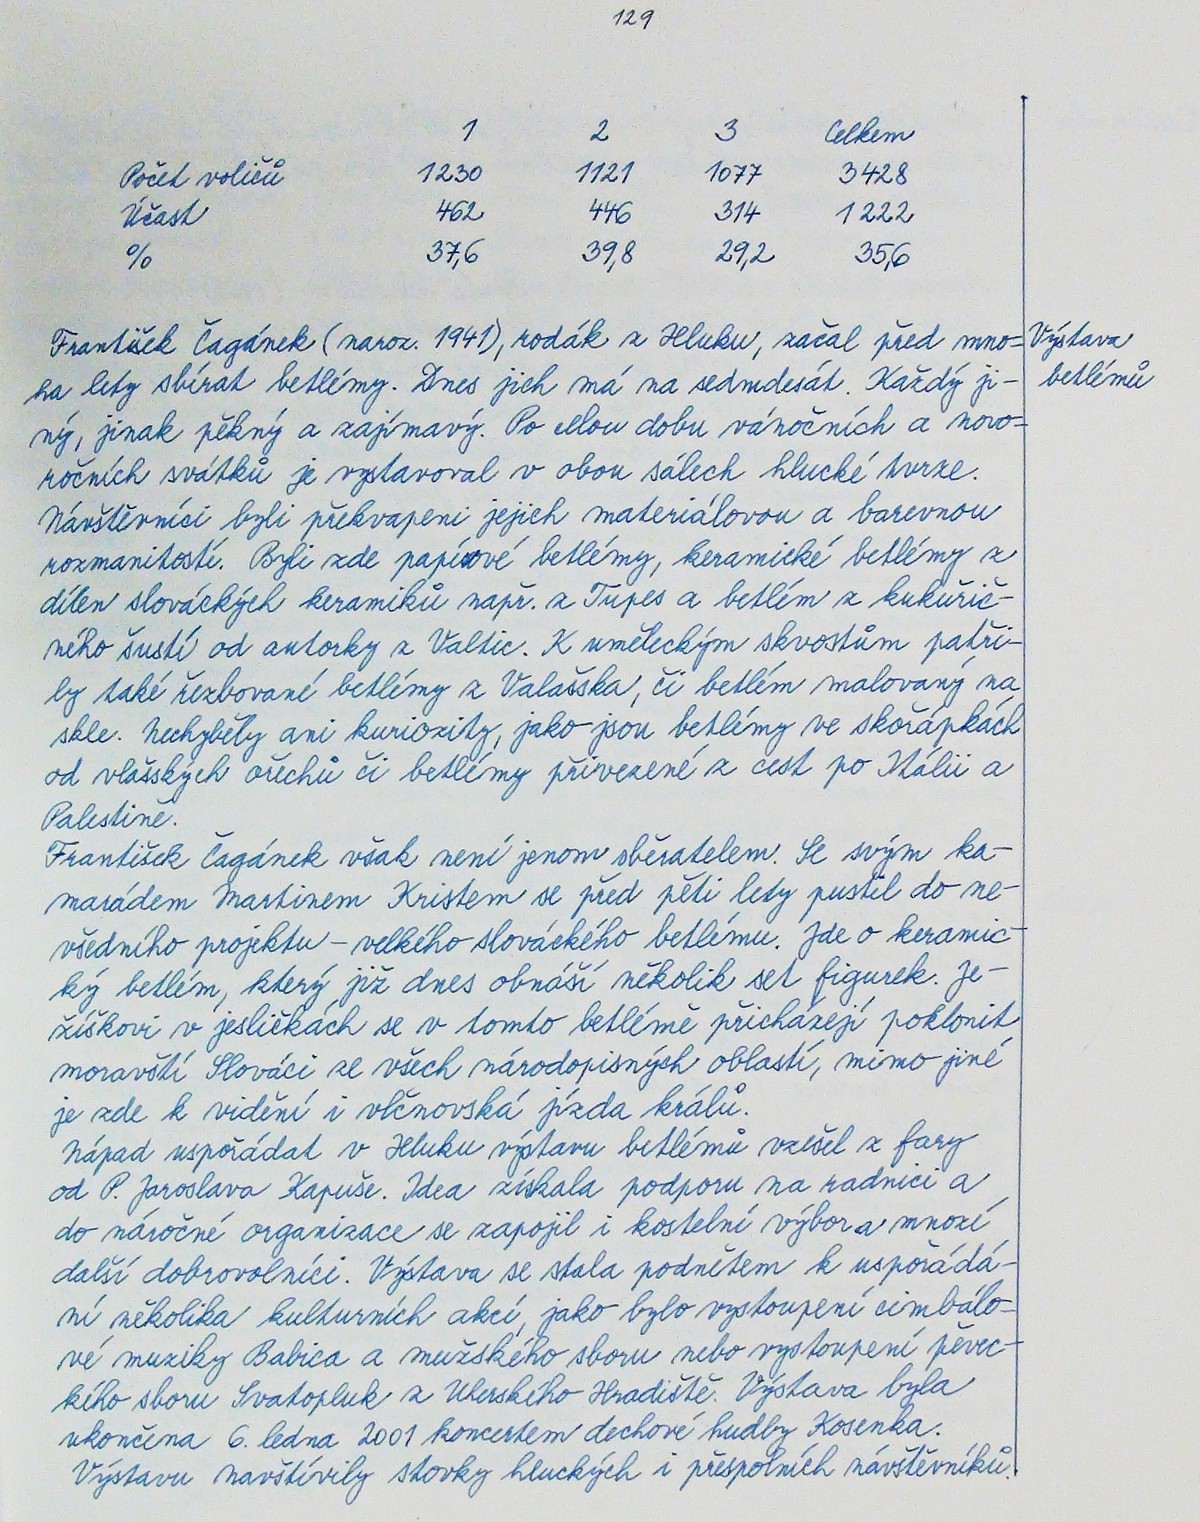 129
1 2 3 Celkem
Počet voličů 1230 1121 1077 3428
Účast 462 446 314 1222
% 37,6 39,8 29,2 35,6
František Čagánek (naroz. 1941), rodák z Hluku, začal před mno= Výstava
ha lety sbírat betlémy. Dnes jich má na sedmdesát. Každý ji- betlémů
ný, jinak pěkný a zajímavý. Po celou dobu vánočních a novo=
ročních svátků je vystavoval v obou sálech hlucké tvrze.
Návštěvníci byli překvapeni jejich materiálovou a barevnou
rozmanitostí. Byli zde papírové betlémy, keramické betlémy z
dílen slováckých keramiků např. z Tupes a betlém z kukuřič-
ného šustí od autorky z Valtic. K uměleckým skvostům patři-
ly také řezbované betlémy z Valašska, či betlém malovaný na
skle. Nechyběly ani kuriozity, jako jsou betlémy ve skořápkách
od vlašských ořechů či betlémy přivezené z cest po Itálii a
Palestině.
František Čagánek však není jenom sběratelem. Se svým ka-
marádem Martinem Kristem se před pěti lety pustil do ne-
všedního projektu - velkého slováckého betlému. Jde o keramic-
ký betlém, který již dnes obnáší několik set figurek. Je-
žíškovi v jesličkách se v tomto betlémě přicházejí poklonit
moravští Slováci ze všech národopisných oblastí, mimo jiné
je zde k vidění i vlčnovská jízda králů.
Nápad uspořádat v Hluku výstavu betlémů vzešel z fary
od P. Jaroslava Kapuše. Idea získala podporu na radnici a
do náročné organizace se zapojil i kostelní výbor a mnozí
další dobrovolníci. Výstava se stala podnětem k uspořádá-
ní několika kulturních akcí, jako bylo vystoupení cimbálo=
vé muziky Babica a mužského sboru nebo vystoupení pěvec-
kého sboru Svatopluk z Uherského Hradiště. Výstava byla
ukončena 6. ledna 2001 koncertem dechové hudby Kosenka.
Výstavu navštívily stovky hluckých i přespolních návštěvníků.